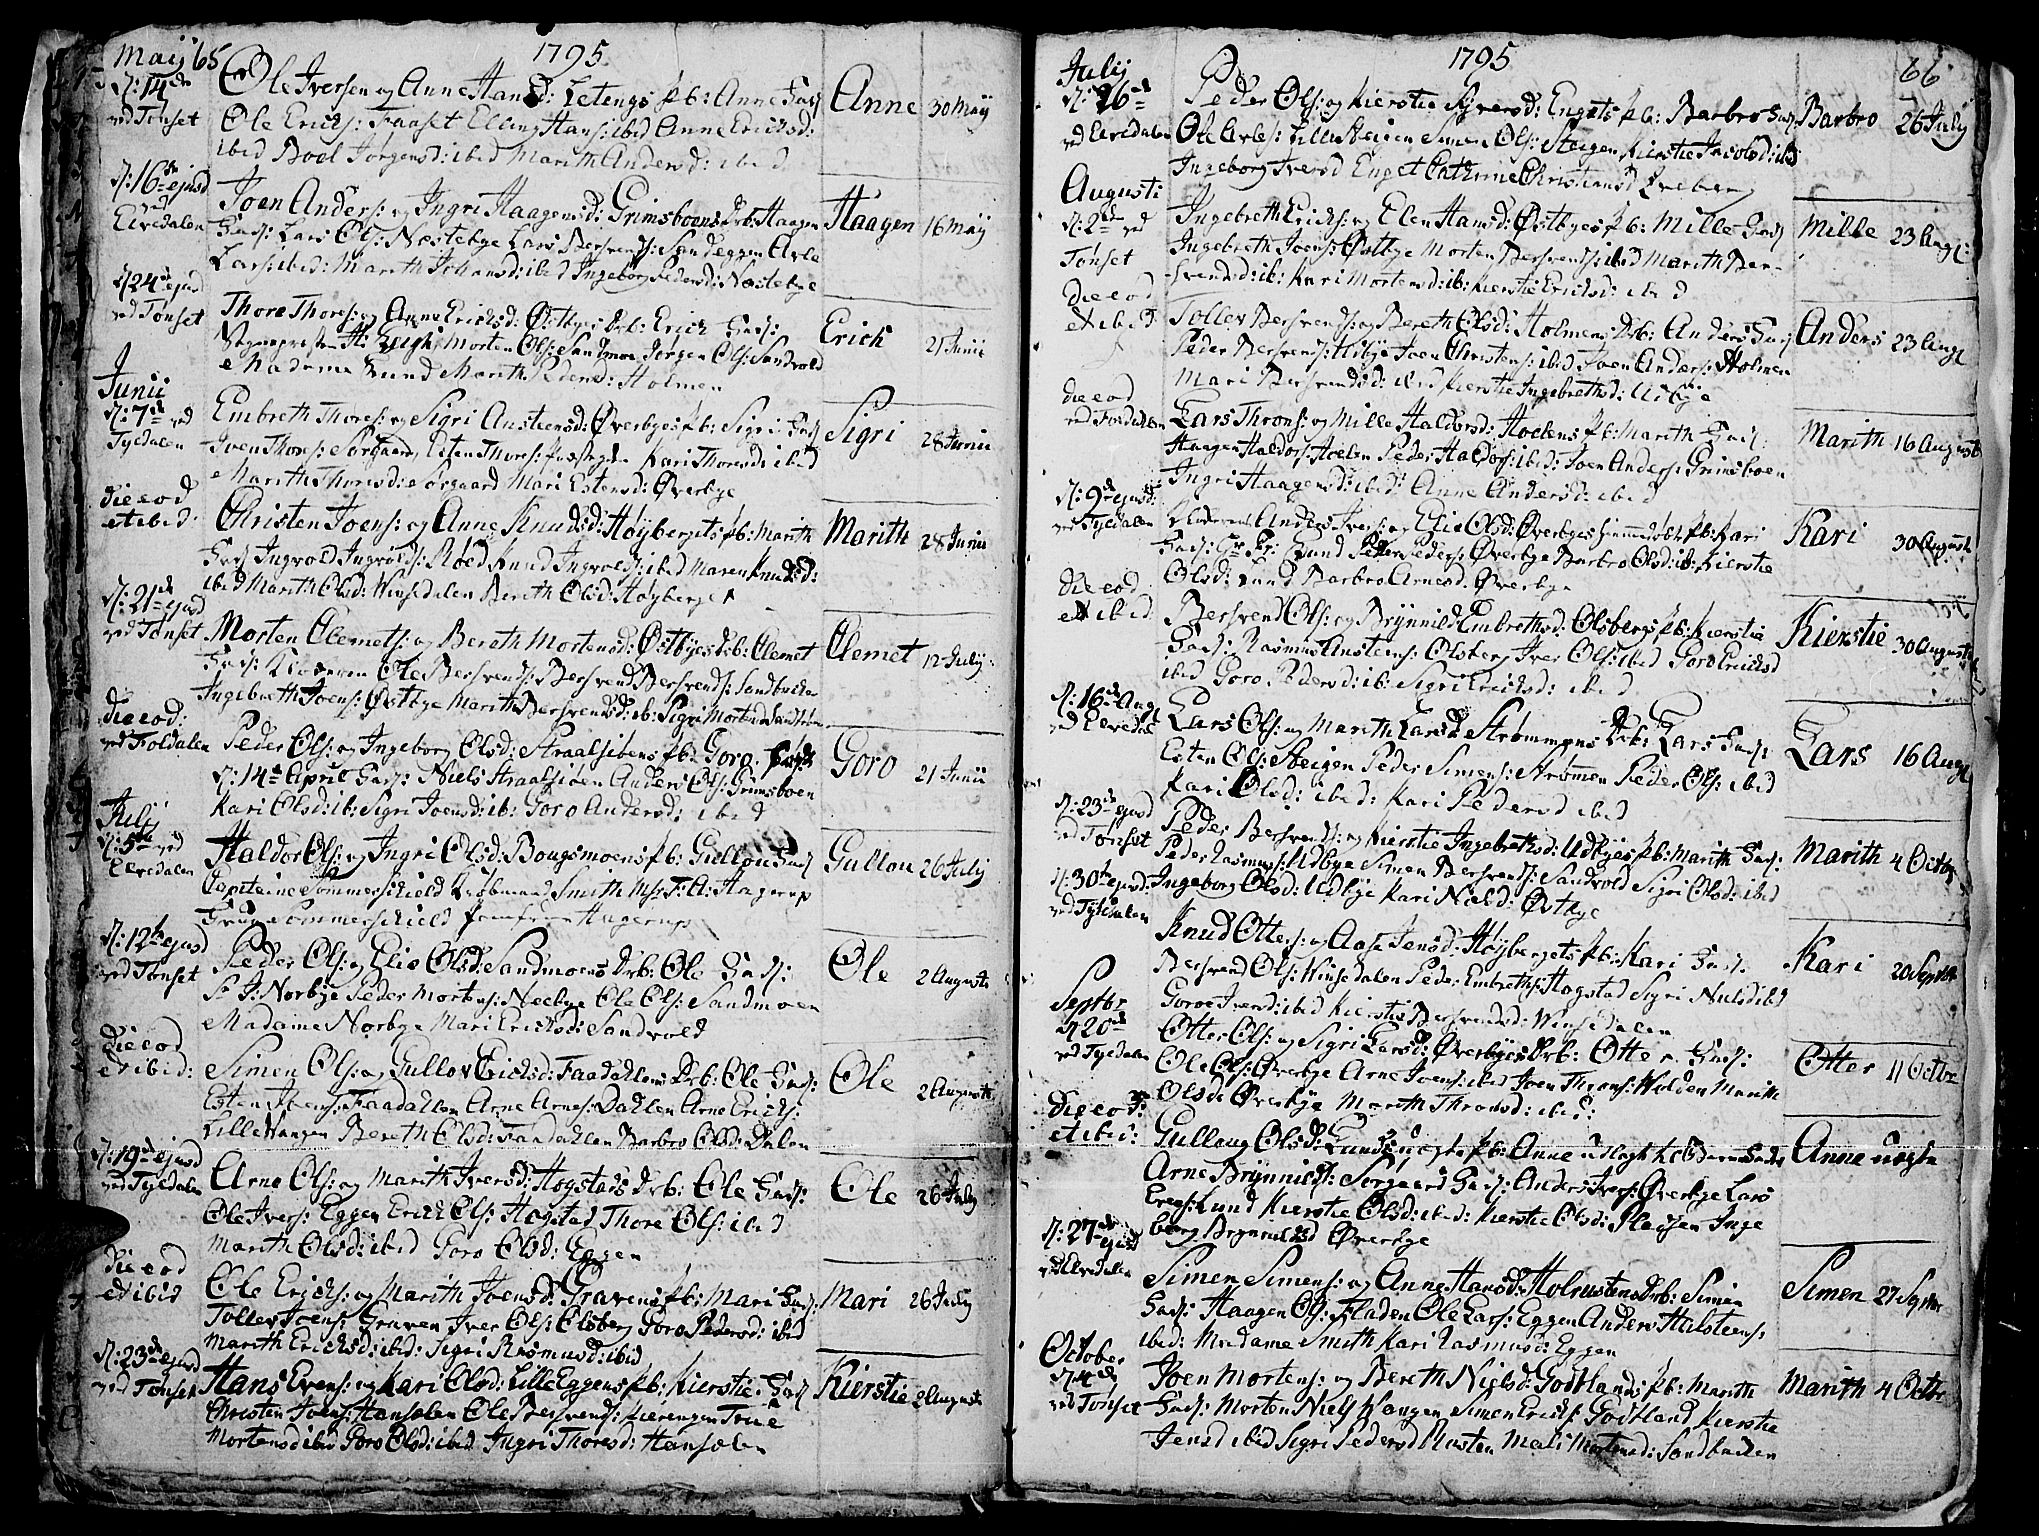 Maij 65
1795
d: 14de
ved Tønset
Ole Iversen og Anne Hansd: Letengs pb: Anne Fad:
Ole Erichs: Faaset Elling Hans: ibid Anne Erichsd:
ibid Boel Jørgensd: ibid Marith Andersd: ibid
Anne 30 Maij
d: 16de ejusd
ved
Elvedalen
Joen Anders: og Ingri Haagensd: Grimsboens Drb: Haagen
Fad: Lars Ols: Næstebye Lars Bersvends: Sandeggen Arle
Lars: ibid: Marith Johansd: ibid Ingeborg Pedersd: Næstebye
Haagen 16 Maij
d 24de ejusd
ved Tønset
Thore Thores: og Anne Erichsd: Østbyes Drb: Erich Fad:
Morten Ols: Sandmoe Jørgen Ols: Sandvold
Madame Lund Marith Pedersd: Holmen
Erich 21 Junii
Junii
d: 7de ved
Tyldalen
Embreth Thores: og Sigri Austensd: Øverbyes pb: Sigri Fad:
Joen Thors: Sørgaard, Esten Thors: Kari Thoresd: ibid
Marith Thoresd: Sørgaard Mari Estensd: Øverbye
Sigri 28 Junii
die eod
et ibid:
Christen Joens: og Anne Knudsd: Høybergets pb: Marith
Fad: Ingvold Ingvolds: Røed Knud Ingvolds: ibid Maren Knudsd:
ibid Marith Olsd: Winsedalen Bereth Olsd: Høyberget
Marith 28 Junii
d: 21de ejusd
ved Tønset
Morten Clemets: og Bereth Mortensd: Østbyes Drb: Clemet
Fad: Ole Bersvends: Bersvend Bersvends: Sandbakken
Ingebreth Joens: Østbye Marith Bersvendsd: ib: Sigri Mortensd
Clemet 12 Julij
die eod:
ved Foldalen
Peder Ols: og Ingeborg Olsd: Straalsiens pb: Goro
d: 14de April Fad: Niels Straalsien Anders Ols: Grimsboen
Kari Olsd: ib: Sigri Joensd: ib: Goro Andersd: ibid
Goro 21 Junii
Julij
d: 5te ved
Elvedalen
Haldor Ols: og Ingri Olsd: Bougsmoens pb: Gullou Fad:
Capitaine Sommerschield Kiøbmand Smith Msr T: A: Hagerup
Frue Sommerschield Jomfrue Hagerup
Gullou 26 Julij
d: 12te ejusd
ved Tønset
Peder Ols: og Elie Olsd: Sandmoens Drb: Ole Fad:
Sr I: Norbye Peder Mortens: Neebye Ole Ols: Sandmoen
Madame Norbye Mari Erichsd: Sandvold
Ole 2 Augusti
die eod
et ibid:
Simen Ols: og Gullov Erichsd: Faadahlens Drb: Ole Fad:
Esten Joens: Faadahlen Arne Arnes: Dahlen Arne Erichs:
Lille Wangen Bereth Olsd: Faadahlen Barbro Olsd: Dalen
Ole 2 Augusti
d: 19de ejusd
ved Tyldalen
Arne Ols: og Marith Iversd: Hogstads Drb: Ole Fad:
Ole Ivers: Eggen Erich Ols: Hogstad Thore Ols: ibid
Marith Olsd: ibid Goro Olsd: Eggen
Ole 26 Julij
die eod
et ibid
Ole Erichs: og Marith Joensd: Gravens pb: Mari Fad:
Tollev Joens: Graven Iver Ols: Olsberg Goro Pedersd: ibid
Marith Erichsd: ibid: Sigri Rasmusd: ibid
Mari 26 Julij
d: 23de ejusd
ved Tønset
Hans Evens: og Kari Olsd: Lille Eggens pb: Kierstie Fad:
Christen Joens: Hansælen Ole Bersvends: Kierengen True
Mortensd ibid Goro Olsd: ibid Ingri Thoresd: Hansælen
Kierstie 2 Augusti
1795
66
Julij
d: 26de
ved Elvedalen
Peder Ols: og Kierstie Siversd: Engets pb: Barbro Fad:
Ole Arles: Lille Steigen Simen Ols: Steigen Kierstie Jacobsd: ibid
Ingeborg Iversd Enget Cathrine Christiansd Øvreberg
Barbro 26 Julij
Augusti
d: 2de ved
Tønset
Ingebreth Erichs: og Elen Hansd: Østbyes pb: Mille Fad:
Ingebreth Joens: Østbye Morten Bersvends: ibid Marith Ber-
svendsd: ib: Kari Mortensd: ib: Kierstie Erichsd: ibid
Mille 23 Aug:
die eod
et ibid
Tollev Bersvends: og Bereth Olsd: Holmens Drb: Anders Fad:
Peder Bersvends: Udbye Joen Christens: ibid Joen Anders: Holmen
Mari Bersvendsd: ibid Kierstie Ingebrethsd: Udbye
Anders 23 Aug:
die eod
ved Foldalen
Lars Throns: og Mille Haldorsd: Hoelens pb: Marith Fad:
Haagen Haldors: Hoelen Peder Haldors: ibid: Joen Anders: Grimsboen
Ingri Haagensd: ibid: Anne Andersd: ibid
Marith 16 Augusti
d: 9de ejusd:
ved Tyldalen
Anders Ivers: og Elie Olsd: Øverbyes pb: Kari
Fad: Lund Peder Peders: Øverbye Barbro Olsd: ib: Kierstie
Olsd: Lund Barbro Arnesd: Øverbye
Kari 30 Augusti
die eod
et ibid
Bersvend Ols: og Brynnild Embrethsd: Olsbergs pb: Kierstie
Fad: Rasmus Austens: Olsberg Iver Ols: ibid Goro Erichsd
ibid Goro Pedersd: ib: Sigri Erichsd: ibid
Kierstie 30 Augusti
d: 16de Aug:
ved Elvedal
Lars Ols: og Marith Larsd Strømmens Drb: Lars Fad:
Esten Ols: Steigen Peder Simens: Strømmen Peder Ols: ibid
Kari Olsd: ibid: Kari Pedersd ibid
Lars 16 Aug:
d: 23de ejusd
ved Tønset
Peder Bersvends: og Kierstie Ingebrethsd: Udbyes pb: Marith Fad:
Peder Rasmus: Udbye Simen Bersvends: Sandvold Sigri Olsd: ibid
Ingeborg Olsd: Udbye Kari Nielsd: Østbye
Marith 4 Octobr
d: 30te ejusd:
ved Tyldalen
Knud Otters: og Aase Jensd: Høybergets pb: Kari Fad:
Bersvend Ols: Winsedalen Peder Embreths: Hogstad Sigri Nielsd ibid
Goroe Iversd: ibid Kierstie Bersvendsd: Winsedalen
Kari 20 Septbr
Septbr
d 20de
ved Tyldalen
Otter Ols: og Sigri Larsd: Øverbyes Drb: Otter Fad:
Ole Ols: Øverbye Arne Joens: ibid Joen Throns: Wolden Marith
Olsd: Øverbye Marith Thronsd: ibid:
Otter 11 Octbr
die eod:
et ibid:
Gullaug Olsd: Lund pb: Anne udlagt
Arne Brynnilds: Sørgaard Fad: Anders Ivers: Øverbye Lars
Evens: Lund Kierstie Olsd: ibid: Kierstie Olsd: Pladsen Inge
borg Brynnildsd Øverbye
Anne
d: 27de ejusd
ved Elvedalen
Simen Simens: og Anne Hansd: Holmstens Drb: Simen
Fad: Haagen Ols: Fladen Ole Lars: Eggen Anders Halsteens:
ibid: Madame Smith Kari Rasmusd: Eggen
Simen 27 Septbr
October
d 4de
ved Tønset
Joen Mortens: og Bereth Nielsd: Godtlands pb: Marith
Fad: Morten Niels: Wangen Simen Erichs: Godtland Kierstie
Jensd ibid Sigri Pedersd Musten Mali Mortensd: Sandbakken
Marith 4 Octbr